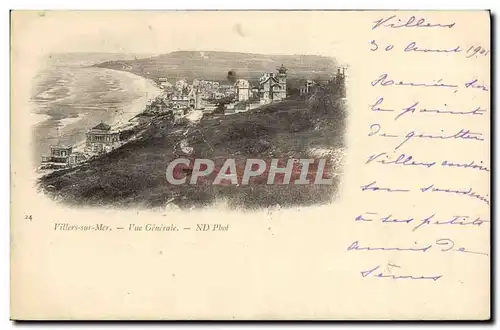 Villers
30 Aout 1901
Renée, sur
le point
de quitter
Villers envoie
son souvenir
à ses petits
amis de
Sèvres
CAPHILA
24
Villers-sur-Mer. — Vue Générale. — ND Phot